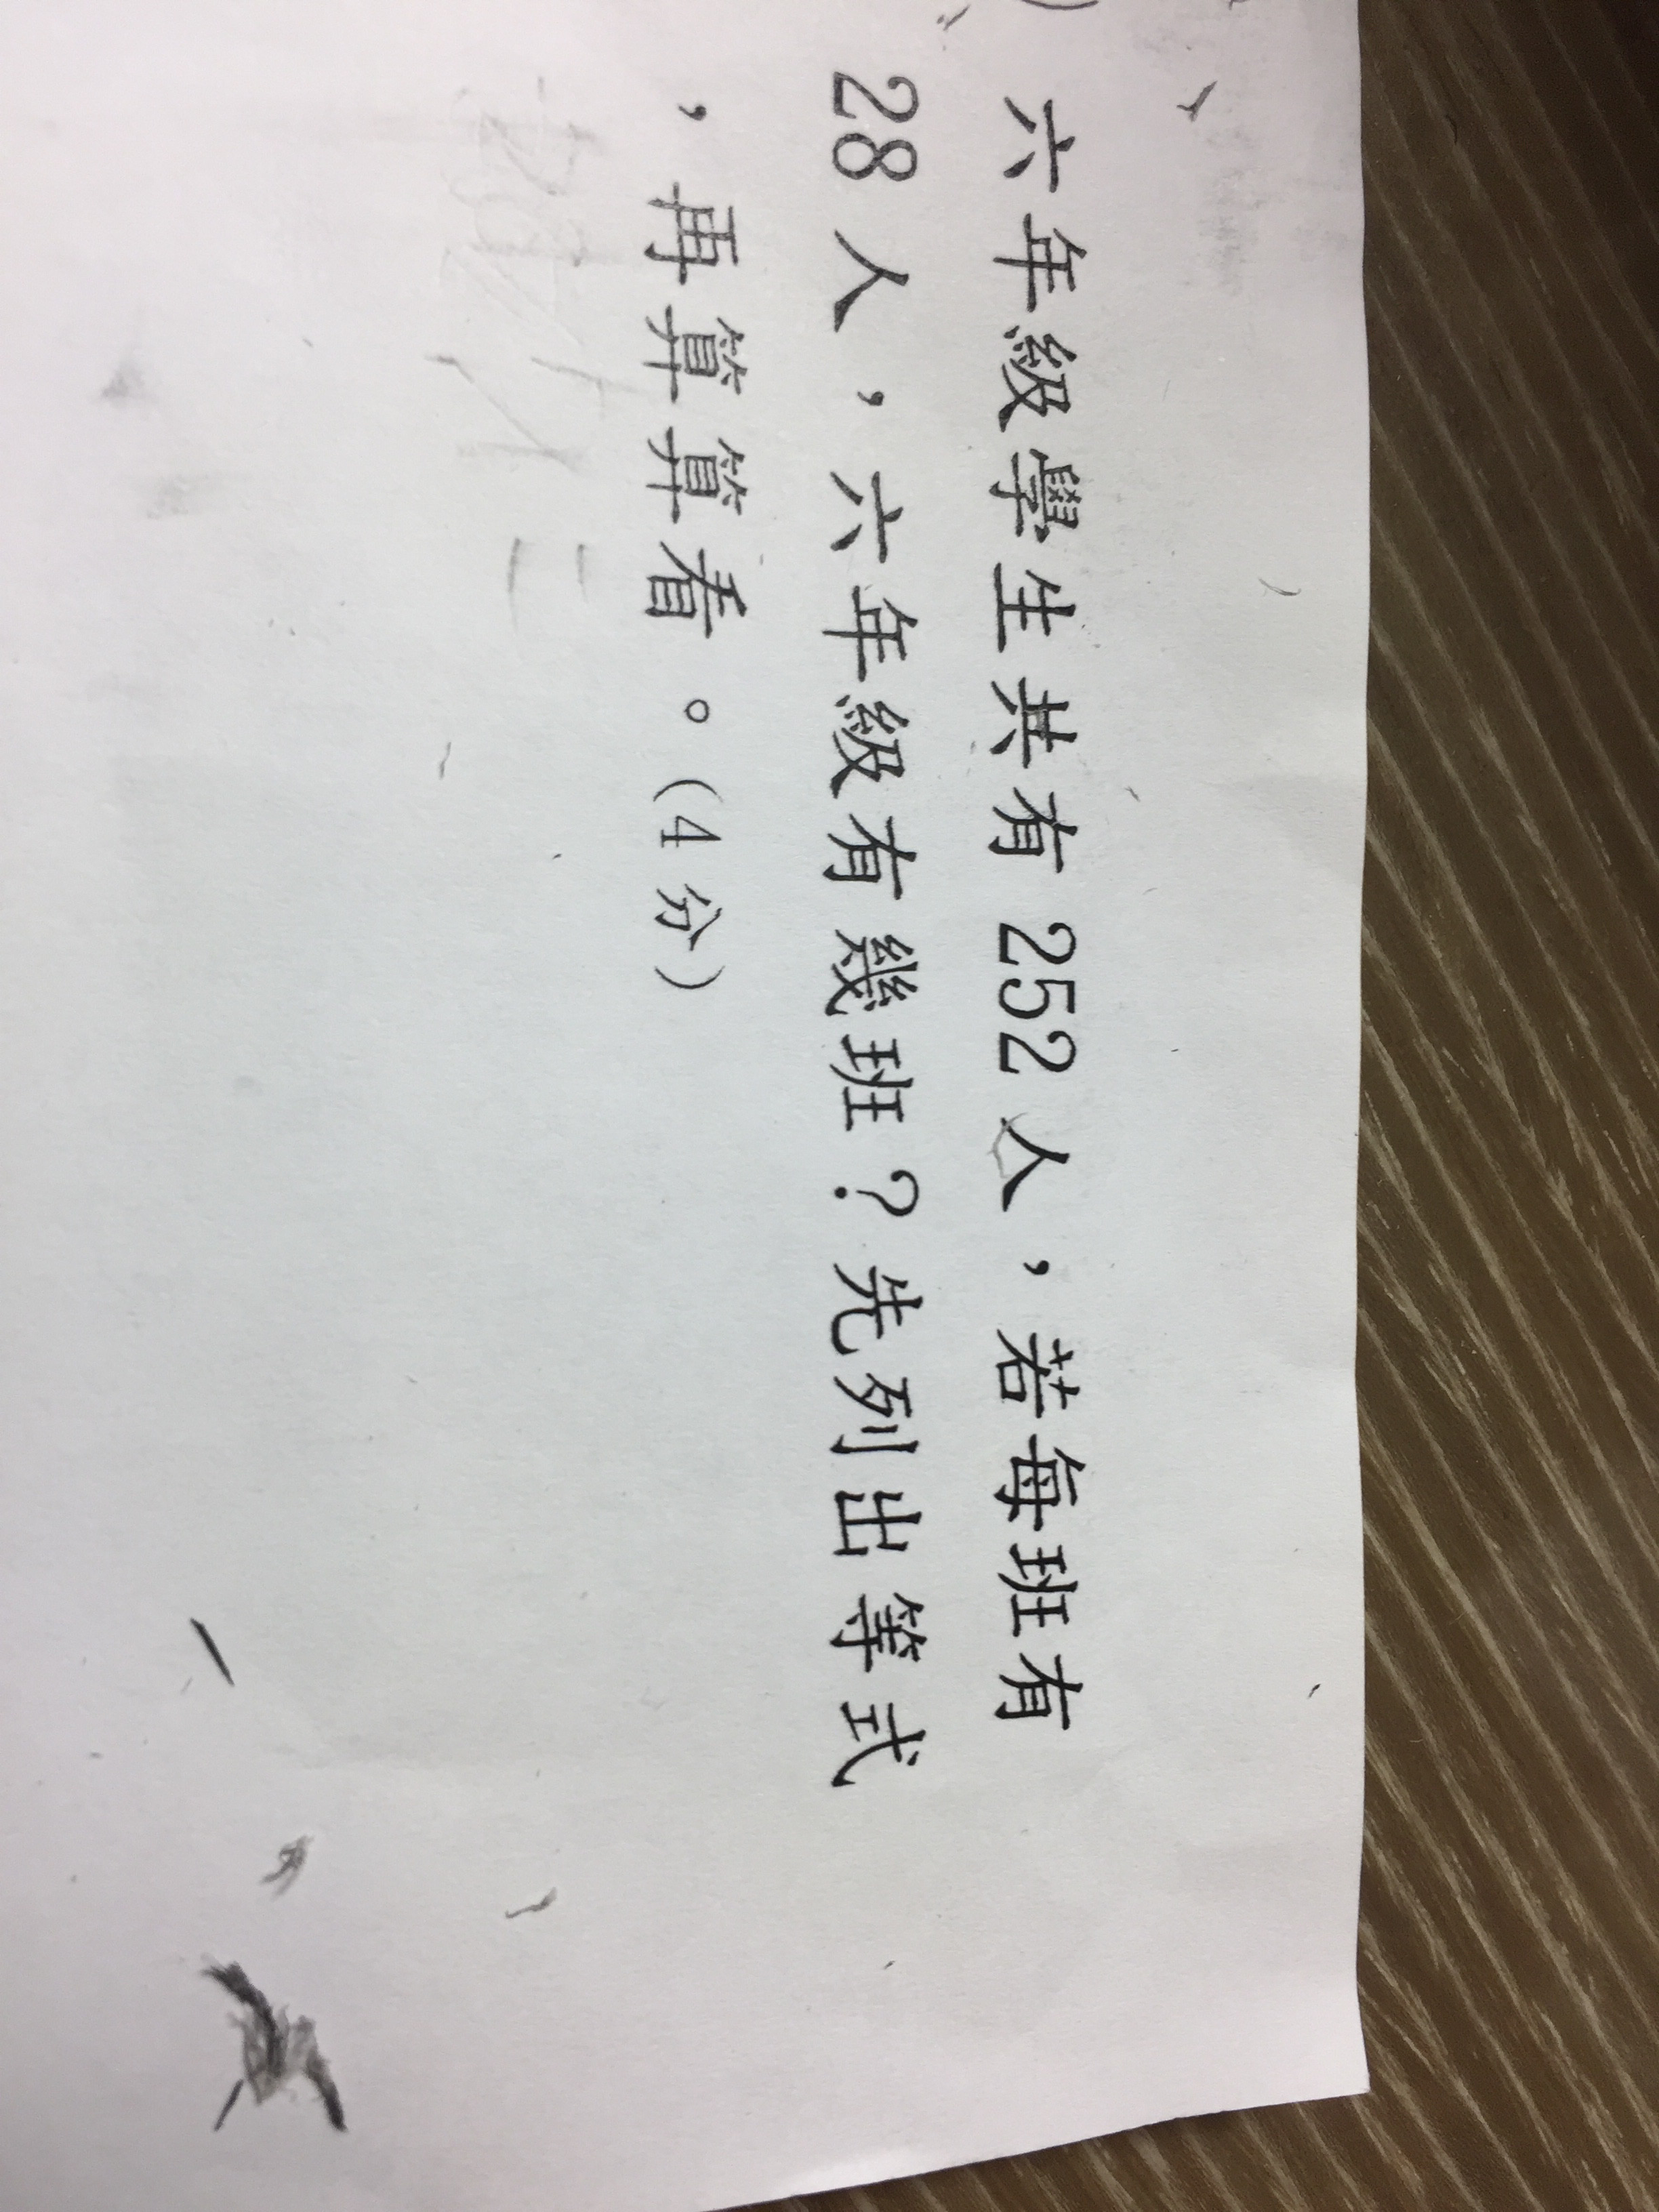 六年級學生共有252人，若每班有
28人，六年級有幾班？先列出等式
，再算算看。(4分)